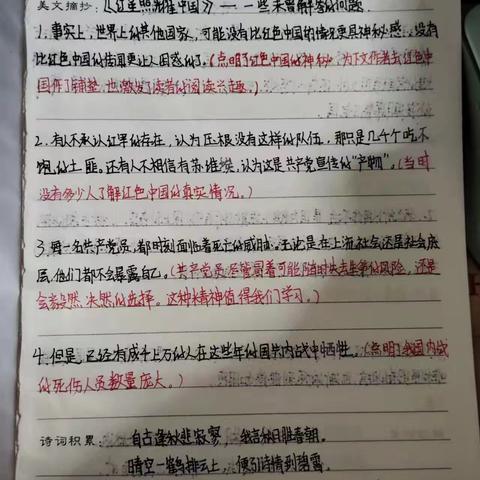 美文摘抄:《红星照耀中国》——一些未曾解答的问题
1.事实上,世界上的其他国家,可能没有比红色中国的情况更具神秘感,没有
比红色中国的信闻更让人困惑的了。(点明了红色中国的神秘,为下文作者去红色中
国作了铺垫,也激发了读者的阅读兴趣。)
2.有人不承认红军的存在,认为压根没有这样的队伍,那只是几千个吃不
饱的土匪。还有人不相信有苏维埃,认为这是共产党宣传的“产物”。(当时
没有多少人了解红色中国的真实情况。)
3.每一名共产党员,都时刻面临着死亡的威胁。无论是在上流社会还是社会底
层,他们都不会暴露自己。(共产党员尽管冒着可能随时失去生命的风险,还是
会毅然决然的选择。这种精神值得我们学习。)
4.但是,已经有成千上万的人在这些年的国共内战中牺牲。(点明了我国内战
的死伤人员数量庞大。)
诗词积累: 自古逢秋悲寂寥,我言秋日胜春朝。
晴空一鹤排云上,便引诗情到碧霄。